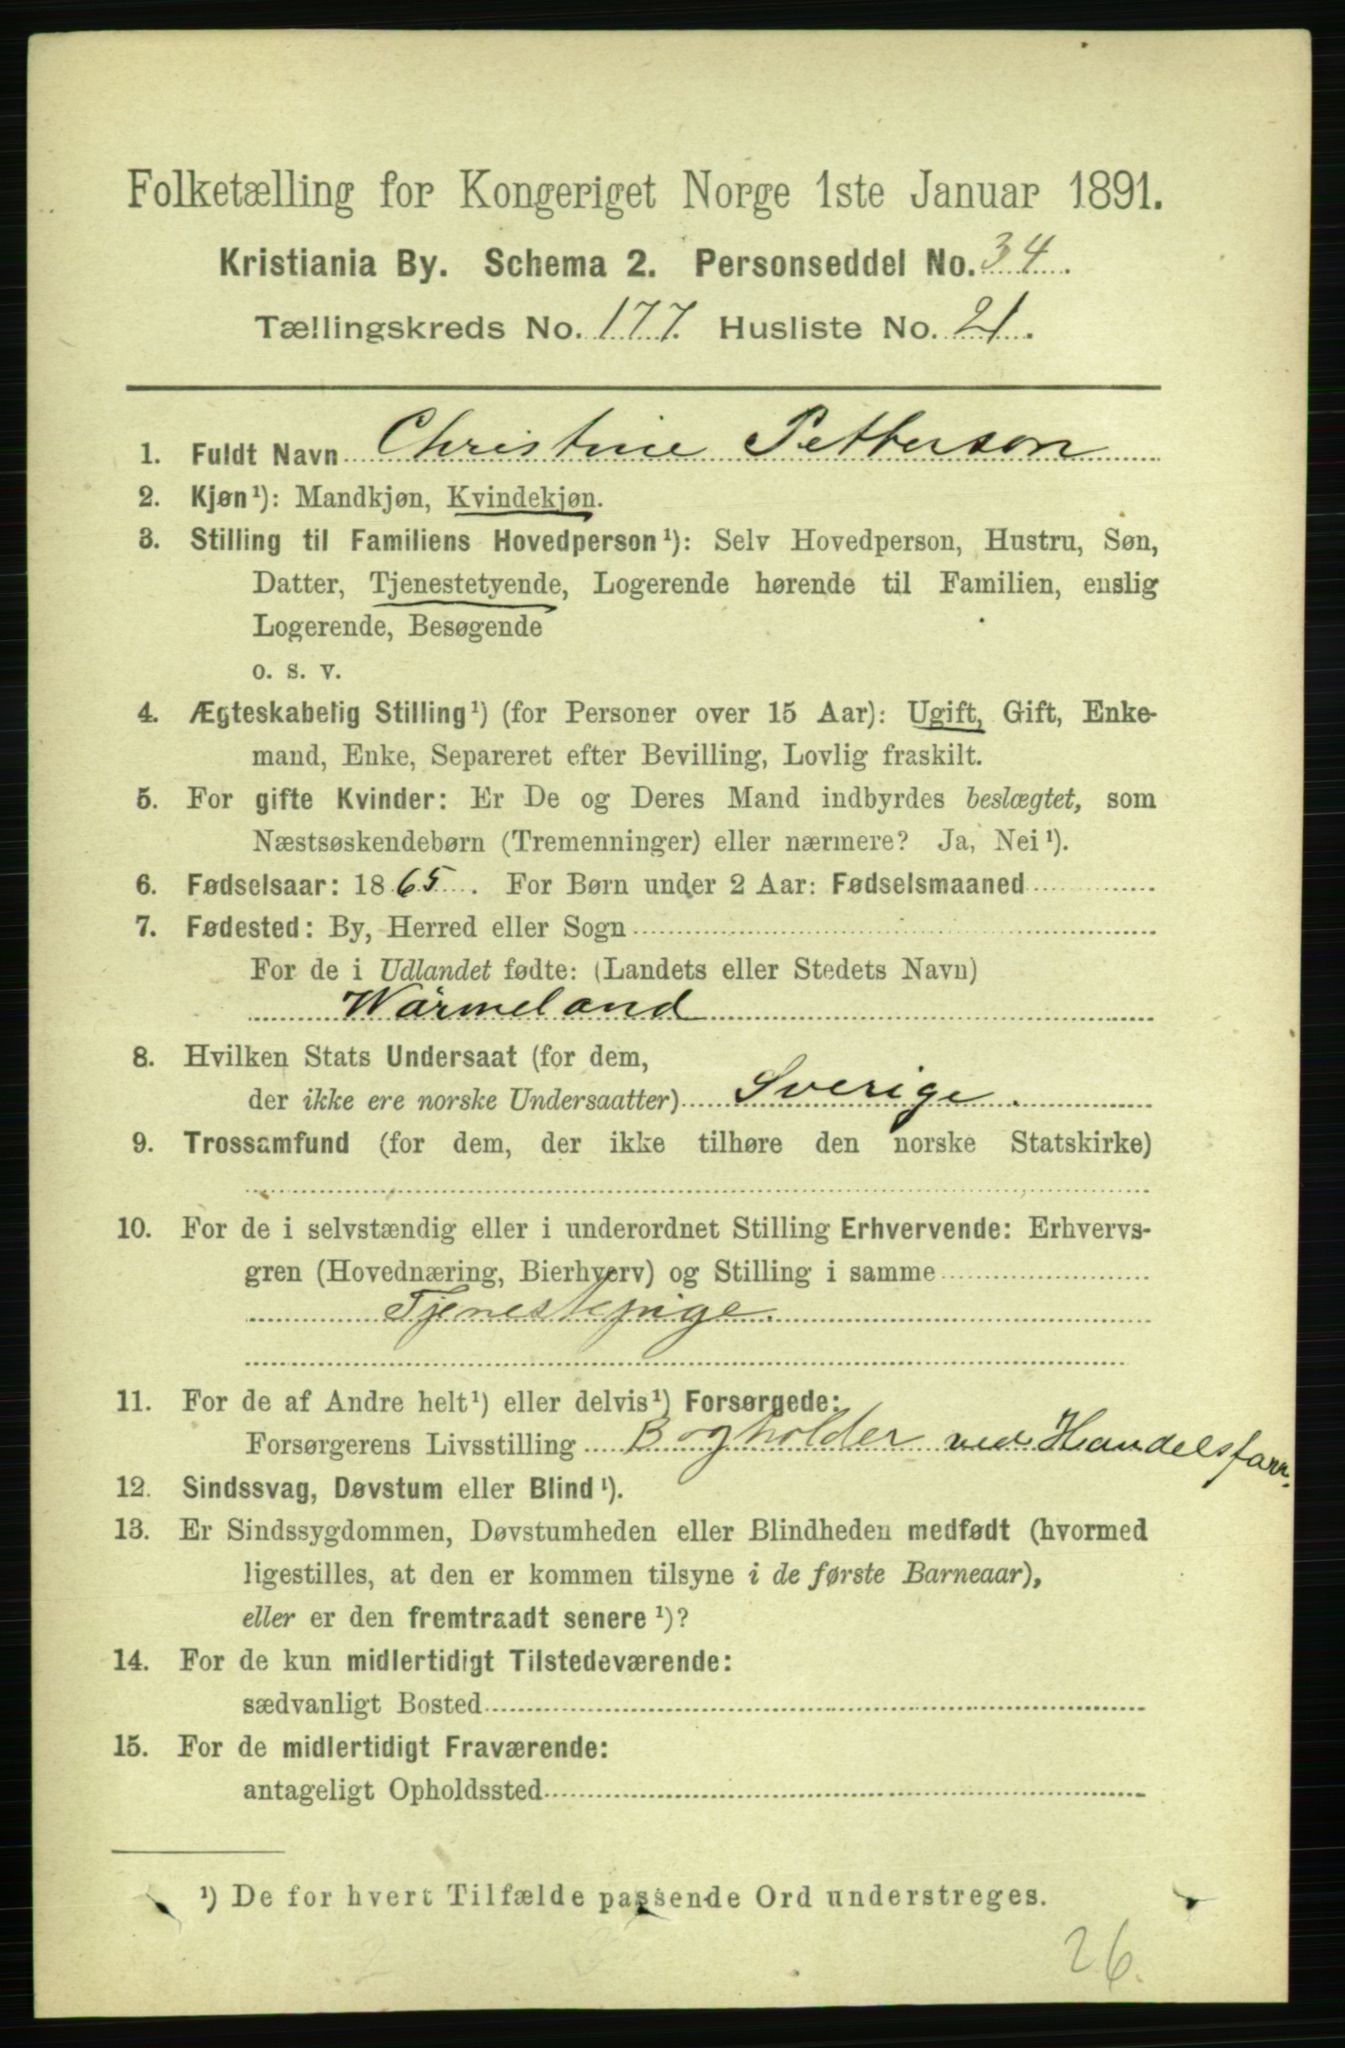 Folketælling for Kongeriget Norge 1ste Januar 1891.
Kristiania By. Schema 2. Personseddel No. 34
Tællingskreds No. 177. Husliste No. 21.
1. Fuldt Navn Christine Petterson
2. Kjøn¹): Mandkjøn, Kvindekjøn.
3. Stilling til Familiens Hovedperson¹): Selv Hovedperson, Hustru, Søn,
Datter, Tjenestetyende, Logerende hørende til Familien, enslig
Logerende, Besøgende
o. s. v.
4. Ægteskabelig Stilling¹) (for Personer over 15 Aar): Ugift, Gift, Enke-
mand, Enke, Separeret efter Bevilling, Lovlig fraskilt.
5. For gifte Kvinder: Er De og Deres Mand indbyrdes beslægtet, som
Næstsøskendebørn (Tremenninger) eller nærmere? Ja, Nei¹).
6. Fødselsaar: 1865. For Børn under 2 Aar: Fødselsmaaned
7. Fødested: By, Herred eller Sogn
For de i Udlandet fødte: (Landets eller Stedets Navn)
Wärmeland
8. Hvilken Stats Undersaat (for dem,
der ikke ere norske Undersaatter) Sverige.
9. Trossamfund (for dem, der ikke tilhøre den norske Statskirke)
10. For de i selvstændig eller i underordnet Stilling Erhvervende: Erhvervs-
gren (Hovednæring, Bierhverv) og Stilling i samme
Tjenestepige.
11. For de af Andre helt¹) eller delvis¹) Forsørgede:
Forsørgerens Livsstilling Bogholder ved Handelsfarr.
12. Sindssvag, Døvstum eller Blind¹).
13. Er Sindssygdommen, Døvstumheden eller Blindheden medfødt (hvormed
ligestilles, at den er kommen tilsyne i de første Barneaar),
eller er den fremtraadt senere¹)?
14. For de kun midlertidigt Tilstedeværende:
sædvanligt Bosted
15. For de midlertidigt Fraværende:
antageligt Opholdssted
¹) De for hvert Tilfælde passende Ord understreges.
26.